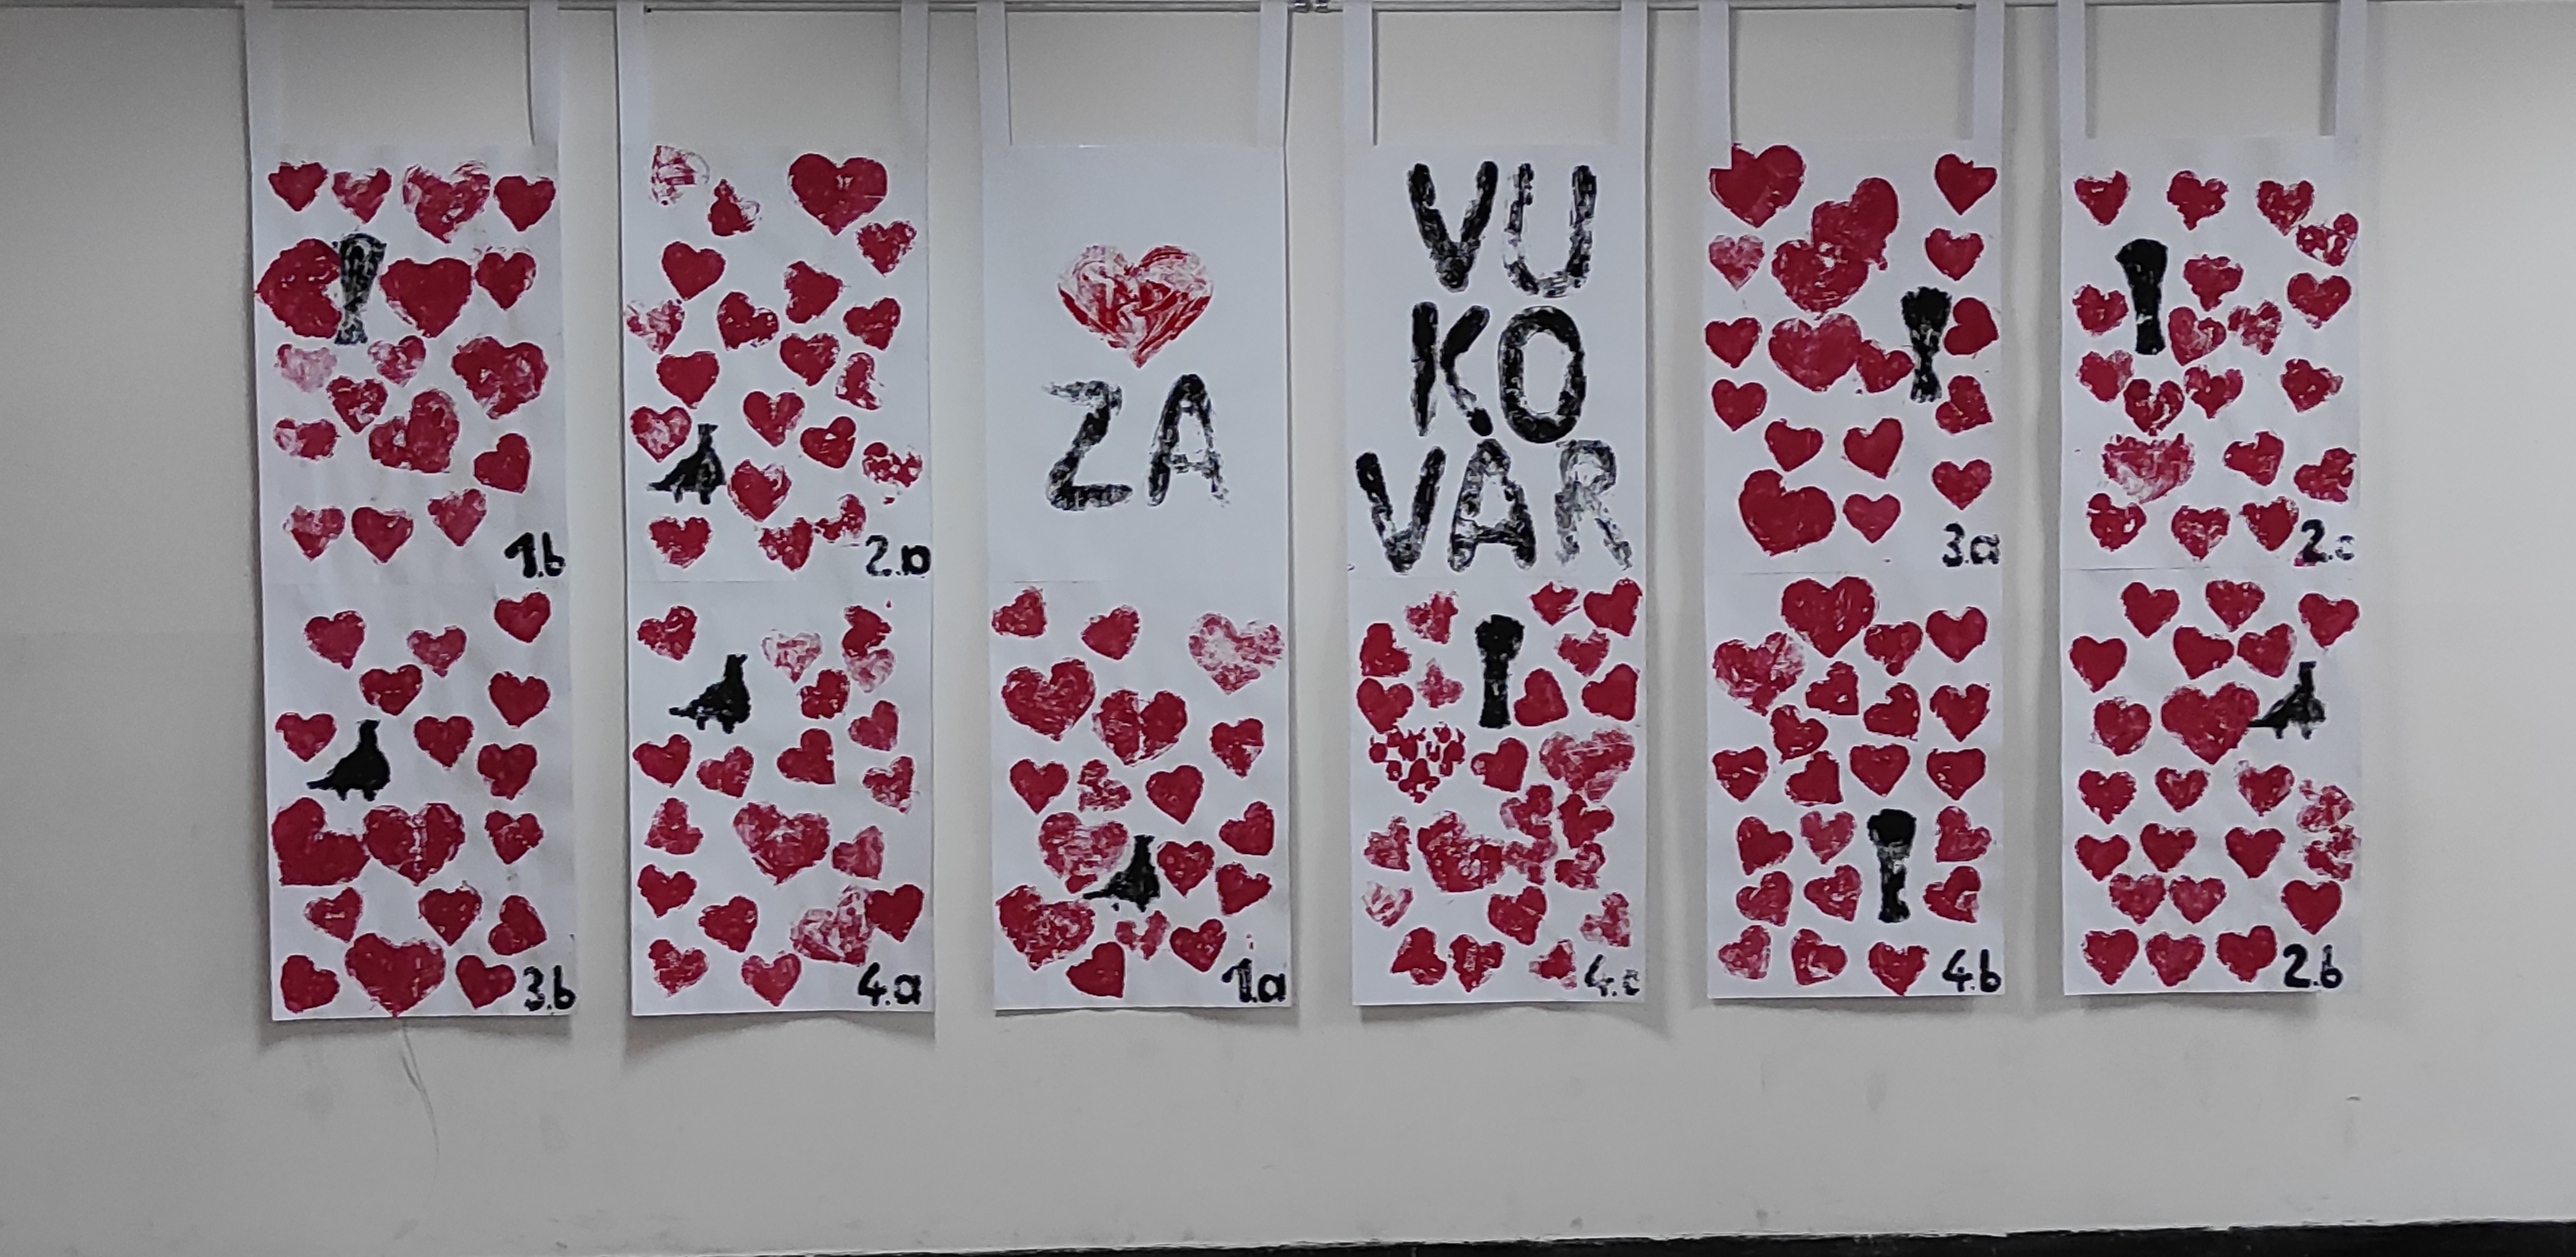 1.b
3.b
2.a
4.a
ZA
1.a
VU
KO
VAR
4.c
3.a
4.b
2.c
2.b